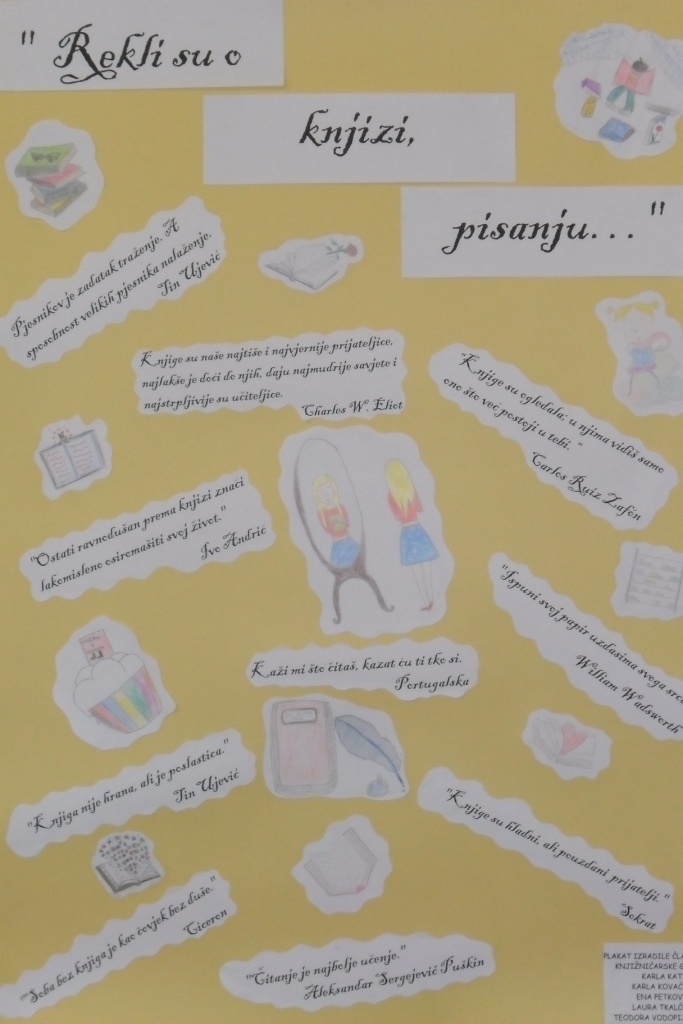 " Rekli su o
knjizi,
pisanju..."
Pjesnikov je zadatak traženje. A
sposobnost velikih pjesnika nalaženje.
Tin Ujević
Knjige su naše najtiše i najvjernije prijateljice,
najlakše je doći do njih, daju najmudrije savjete i
najstrpljivije su učiteljice.
Charles W. Eliot
"Knjige su ogledala: u njima vidiš samo
ono što već postoji u tebi. "
Carlos Ruiz Zafón
"Ostati ravnodušan prema knjizi znači
lakomisleno osiromašiti svoj život."
Ivo Andrić
"Ispuni svoj papir uzdasima svoga src
William Wadsworth
Kaži mi što čitaš, kazat ću ti tko si.
Portugalska
"Knjiga nije hrana, ali je poslastica."
Tin Ujević
"Knjige su hladni, ali pouzdani prijatelji."
Sokrat
""Soba bez knjiga je kao čovjek bez duše."
Ciceron
"Čitanje je najbolje učenje."
Aleksandar Sergejevič Puškin
PLAKAT IZRADILE ČLA
KNJIŽNIČARSKE G
KARLA KAT
KARLA KOVAČ
ENA PETKOV
LAURA TKALČ
TEODORA VODOPI